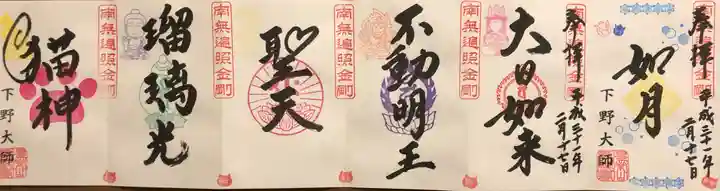 奉拝
平成三十一年
二月十七日
如月
下野大師
南無遍照金剛
奉拝
平成三十一年
二月十七日
大日如来
南無遍照金剛
不動明王
南無遍照金剛
聖天
南無遍照金剛
瑠璃光
南無遍照金剛
猫神
下野大師